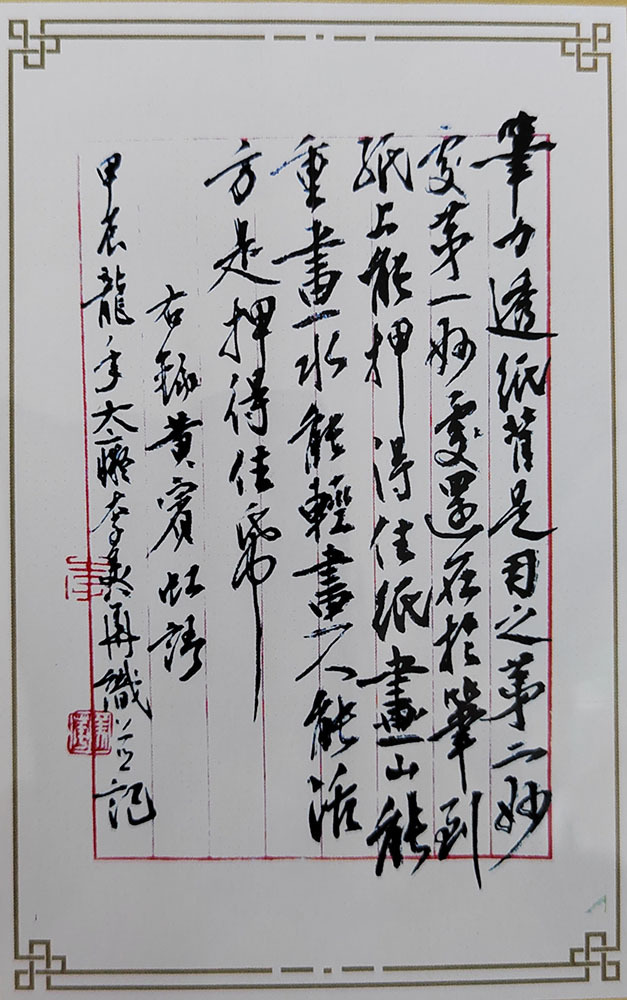 筆力透紙背是用之第二妙
處第一妙處還在於筆到
紙上能押得住紙畫山能
重畫水能輕畫人能活
方是押得住帋
右錄黃賓虹語
甲辰龍年太李英再識並記